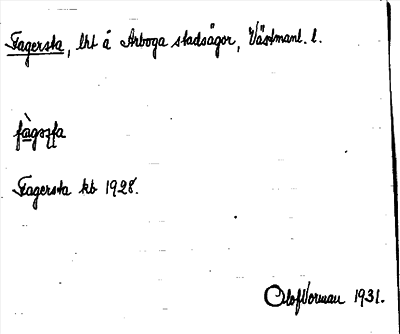 Fagersta, lht å Arboga stadsägor, Västmanl. l.
Fagersta kb 1928.
Olof Vorman 1931.